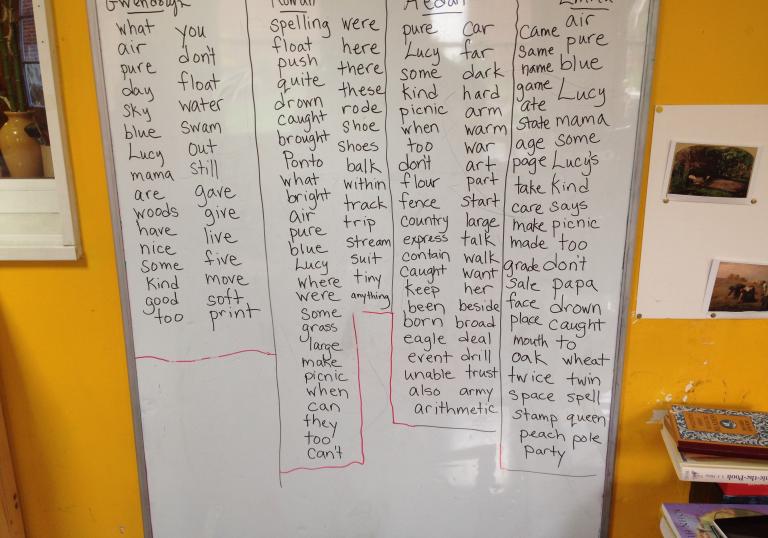 what
air
pure
day
sky
blue
Lucy
mama
are
woods
have
nice
some
kind
good
too
you
don't
float
water
swam
out
still
gave
give
live
five
move
soft
print
Rowan
spelling
float
push
quite
drown
caught
brought
Ponto
what
bright
air
pure
blue
Lucy
where
were
some
grass
large
make
picnic
when
can
they
too
can't
were
here
there
these
rode
shoe
shoes
balk
within
track
trip
stream
suit
tiny
anything
Aedan
pure
Lucy
some
kind
picnic
when
too
don't
flour
fence
country
express
contain
caught
keep
been
born
eagle
event
unable
also
arithmetic
car
far
dark
hard
arm
warm
war
art
part
start
large
talk
walk
want
her
beside
broad
deal
drill
trust
army
came
same
name
game
ate
state
age
page
take
care
make
made
grade
sale
face
place
mouth
oak
twice
space
stamp
peach
party
air
pure
blue
Lucy
mama
some
Lucy's
kind
says
picnic
too
don't
papa
drown
caught
to
wheat
twin
spell
queen
pole